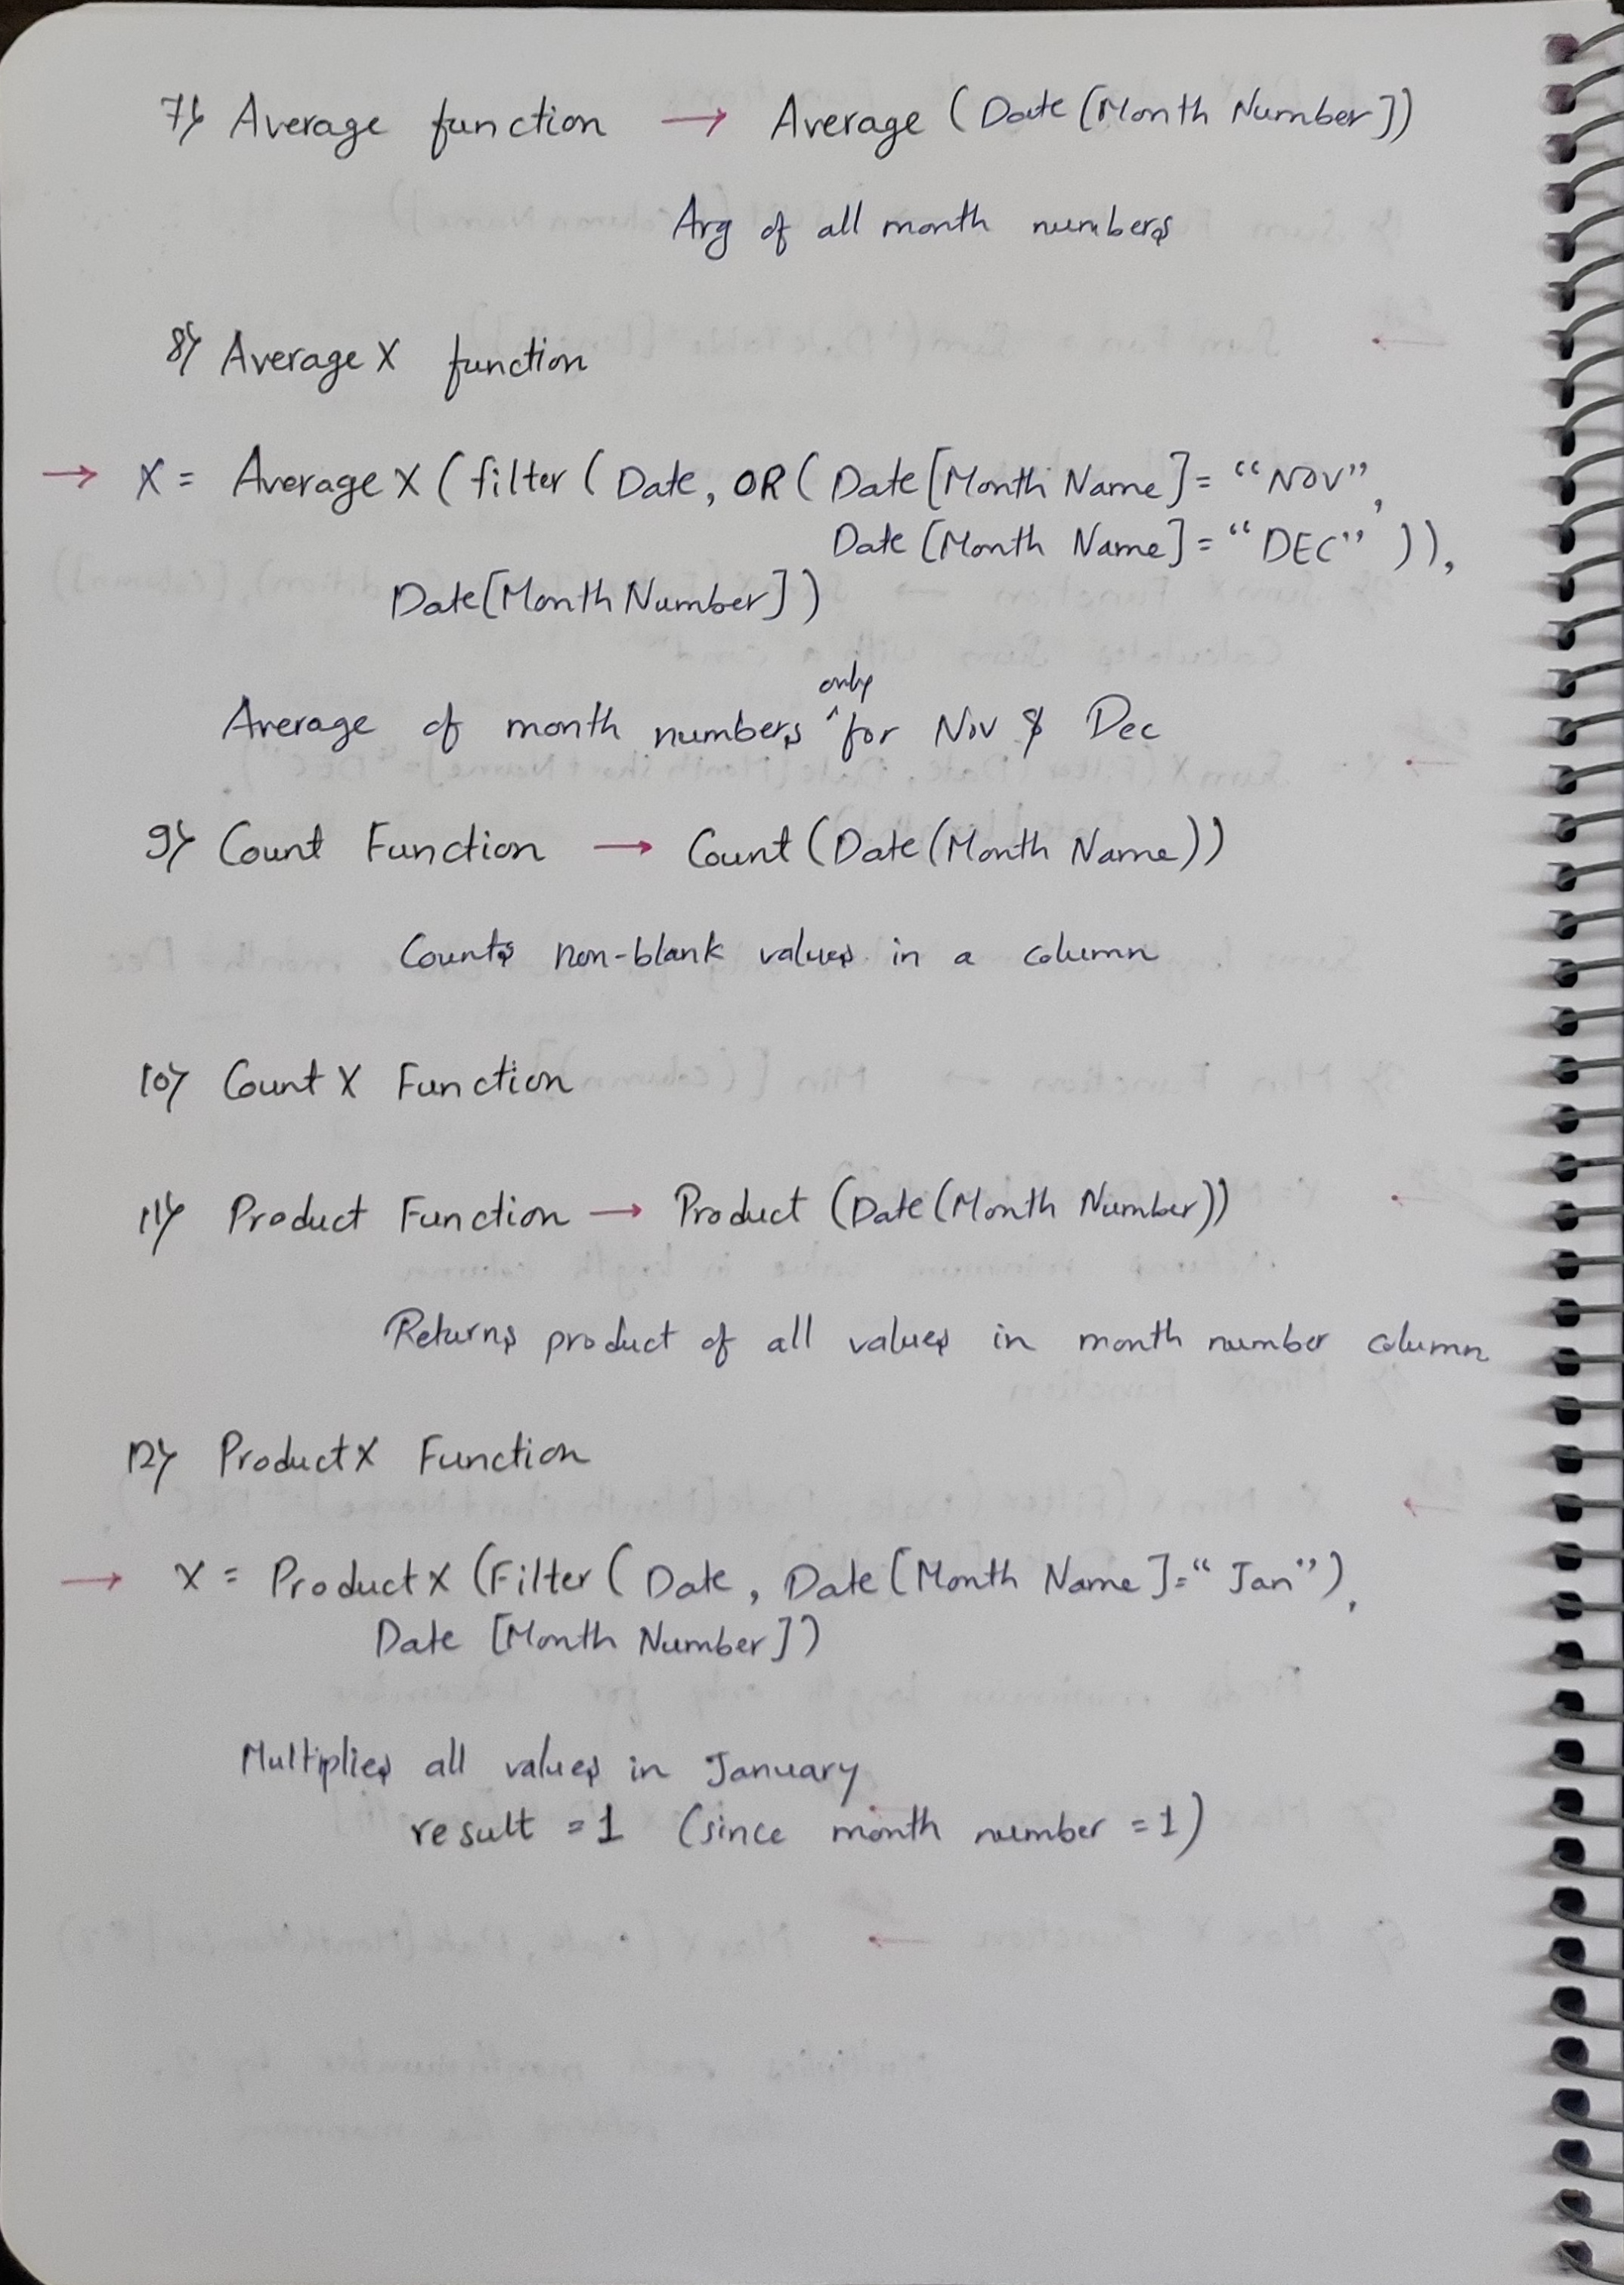 7) Average function → Average (Date [Month Number])
Avg of all month numbers
8) Average X function
→ X = Average X (filter ( Date, OR ( Date [Month Name] = "NOV",
Date [Month Name] = "DEC" )),
Date [Month Number])
only
Average of month numbers ^ for Nov & Dec
9) Count Function → Count (Date (Month Name))
Counts non-blank values in a column
10) Count X Function
11) Product Function → Product (Date (Month Number))
Returns product of all values in month number column
12) Product X Function
→ X = Product X (Filter ( Date, Date [Month Name] = "Jan"),
Date [Month Number])
Multiplies all values in January
result = 1 (since month number = 1)